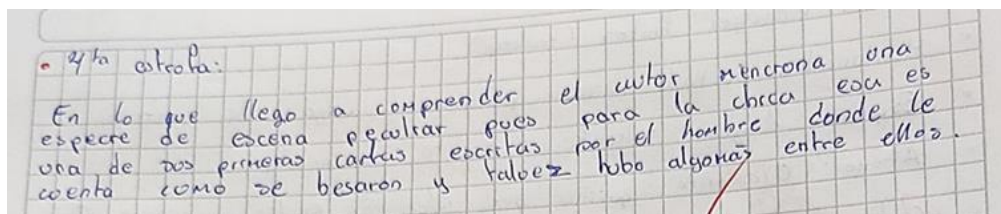 • 4ta estrofa:
En lo que llego a comprender el autor menciona una
especie de escena peculiar pues para la chica esa es
una de sus primeras cartas escritas por el hombre donde le
cuenta como se besaron y talvez hubo algomás entre ellos.